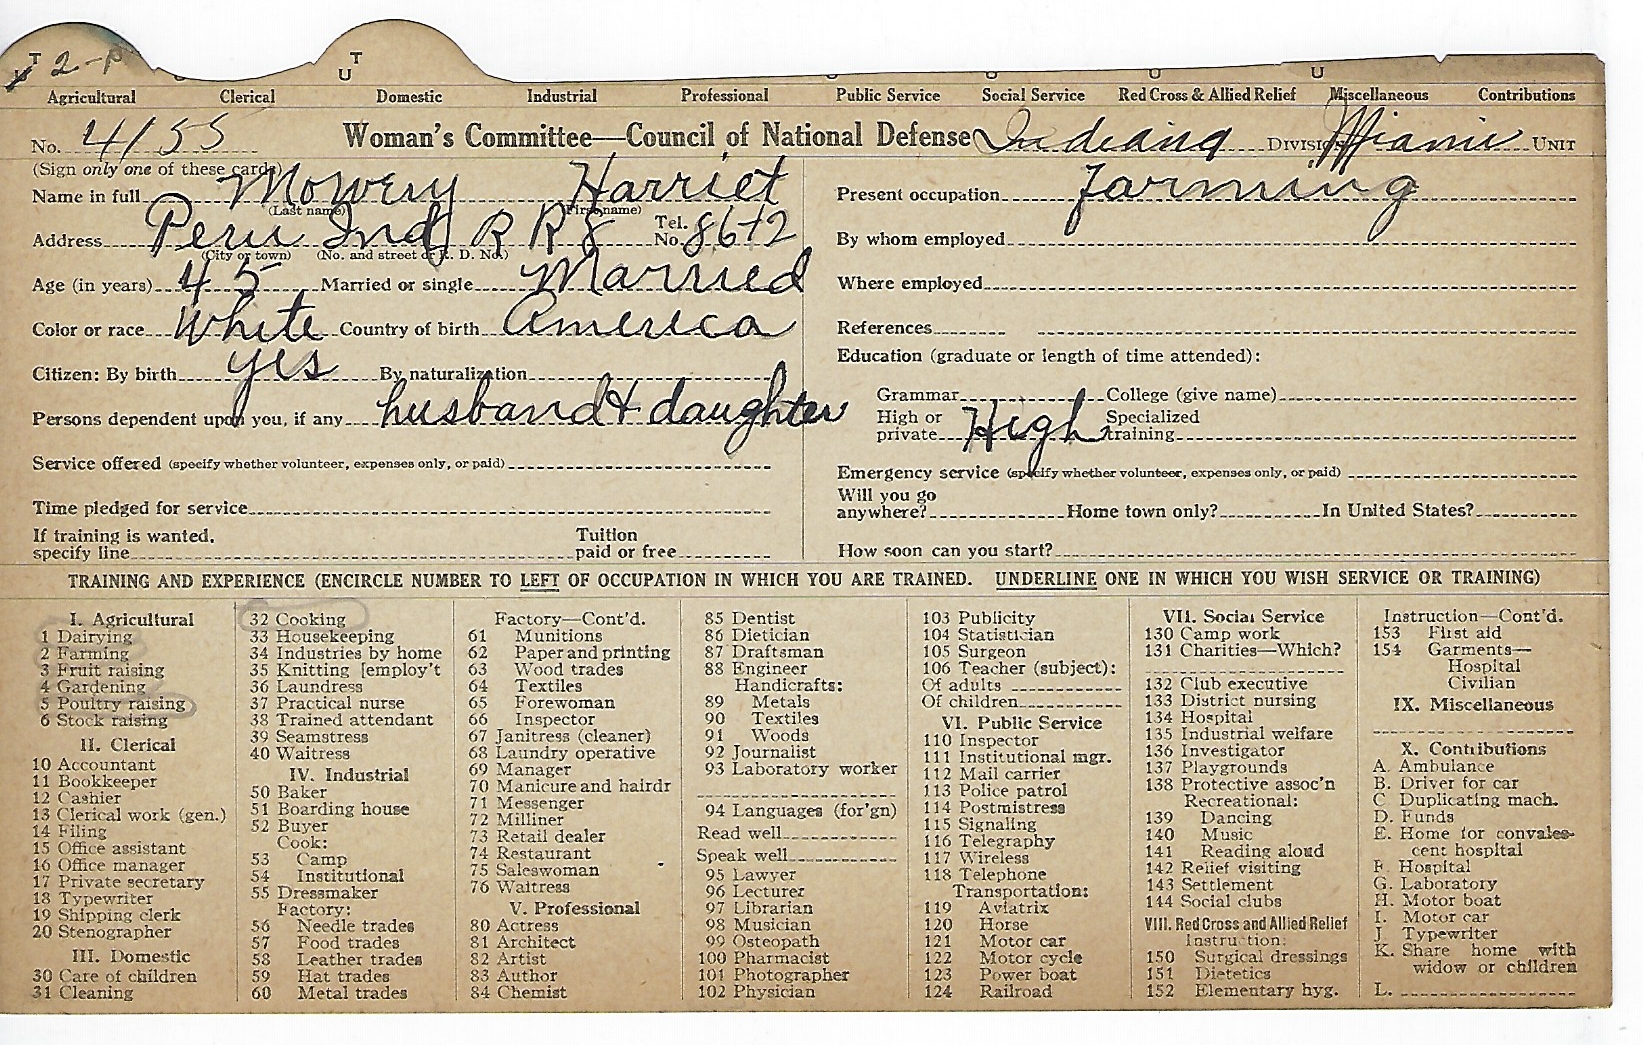 T U 2-P T U U U U
Agricultural Clerical Domestic Industrial Professional Public Service Social Service Red Cross & Allied Relief Miscellaneous Contributions
No. 4155 Woman's Committee—Council of National Defense Indiana DIVISION Miami UNIT
(Sign only one of these cards)
Name in full Mowery Harriet
(Last name) (First name)
Address Peru Ind R R 8 Tel. No. 86-12
(City or town) (No. and street or R. D. No.)
Age (in years) 45 Married or single Married
Color or race White Country of birth America
Citizen: By birth yes By naturalization
Persons dependent upon you, if any husband & daughter
Service offered (specify whether volunteer, expenses only, or paid)
Time pledged for service
If training is wanted, specify line Tuition paid or free
Present occupation Farming
By whom employed
Where employed
References
Education (graduate or length of time attended):
Grammar College (give name)
High or private High Specialized training
Emergency service (specify whether volunteer, expenses only, or paid)
Will you go anywhere? Home town only? In United States?
How soon can you start?
TRAINING AND EXPERIENCE (ENCIRCLE NUMBER TO LEFT OF OCCUPATION IN WHICH YOU ARE TRAINED. UNDERLINE ONE IN WHICH YOU WISH SERVICE OR TRAINING)
I. Agricultural
1 Dairying
2 Farming
3 Fruit raising
4 Gardening
5 Poultry raising
6 Stock raising
II. Clerical
10 Accountant
11 Bookkeeper
12 Cashier
13 Clerical work (gen.)
14 Filing
15 Office assistant
16 Office manager
17 Private secretary
18 Typewriter
19 Shipping clerk
20 Stenographer
III. Domestic
30 Care of children
31 Cleaning
32 Cooking
33 Housekeeping
34 Industries by home
35 Knitting [employ't
36 Laundress
37 Practical nurse
38 Trained attendant
39 Seamstress
40 Waitress
IV. Industrial
50 Baker
51 Boarding house
52 Buyer
Cook:
53 Camp
54 Institutional
55 Dressmaker
Factory:
56 Needle trades
57 Food trades
58 Leather trades
59 Hat trades
60 Metal trades
Factory—Cont'd.
61 Munitions
62 Paper and printing
63 Wood trades
64 Textiles
65 Forewoman
66 Inspector
67 Janitress (cleaner)
68 Laundry operative
69 Manager
70 Manicure and hairdr
71 Messenger
72 Milliner
73 Retail dealer
74 Restaurant
75 Saleswoman
76 Waitress
V. Professional
80 Actress
81 Architect
82 Artist
83 Author
84 Chemist
85 Dentist
86 Dietician
87 Draftsman
88 Engineer
Handicrafts:
89 Metals
90 Textiles
91 Woods
92 Journalist
93 Laboratory worker
94 Languages (for'gn)
Read well
Speak well
95 Lawyer
96 Lecturer
97 Librarian
98 Musician
99 Osteopath
100 Pharmacist
101 Photographer
102 Physician
103 Publicity
104 Statistician
105 Surgeon
106 Teacher (subject):
Of adults
Of children
VI. Public Service
110 Inspector
111 Institutional mgr.
112 Mail carrier
113 Police patrol
114 Postmistress
115 Signaling
116 Telegraphy
117 Wireless
118 Telephone
Transportation:
119 Aviatrix
120 Horse
121 Motor car
122 Motor cycle
123 Power boat
124 Railroad
VII. Social Service
130 Camp work
131 Charities—Which?
132 Club executive
133 District nursing
134 Hospital
135 Industrial welfare
136 Investigator
137 Playgrounds
138 Protective assoc'n
Recreational:
139 Dancing
140 Music
141 Reading aloud
142 Relief visiting
143 Settlement
144 Social clubs
VIII. Red Cross and Allied Relief
Instruction:
150 Surgical dressings
151 Dietetics
152 Elementary hyg.
Instruction—Cont'd.
153 First aid
154 Garments—
Hospital
Civilian
IX. Miscellaneous
X. Contributions
A. Ambulance
B. Driver for car
C. Duplicating mach.
D. Funds
E. Home for convales-
cent hospital
F. Hospital
G. Laboratory
H. Motor boat
I. Motor car
J. Typewriter
K. Share home with
widow or children
L.